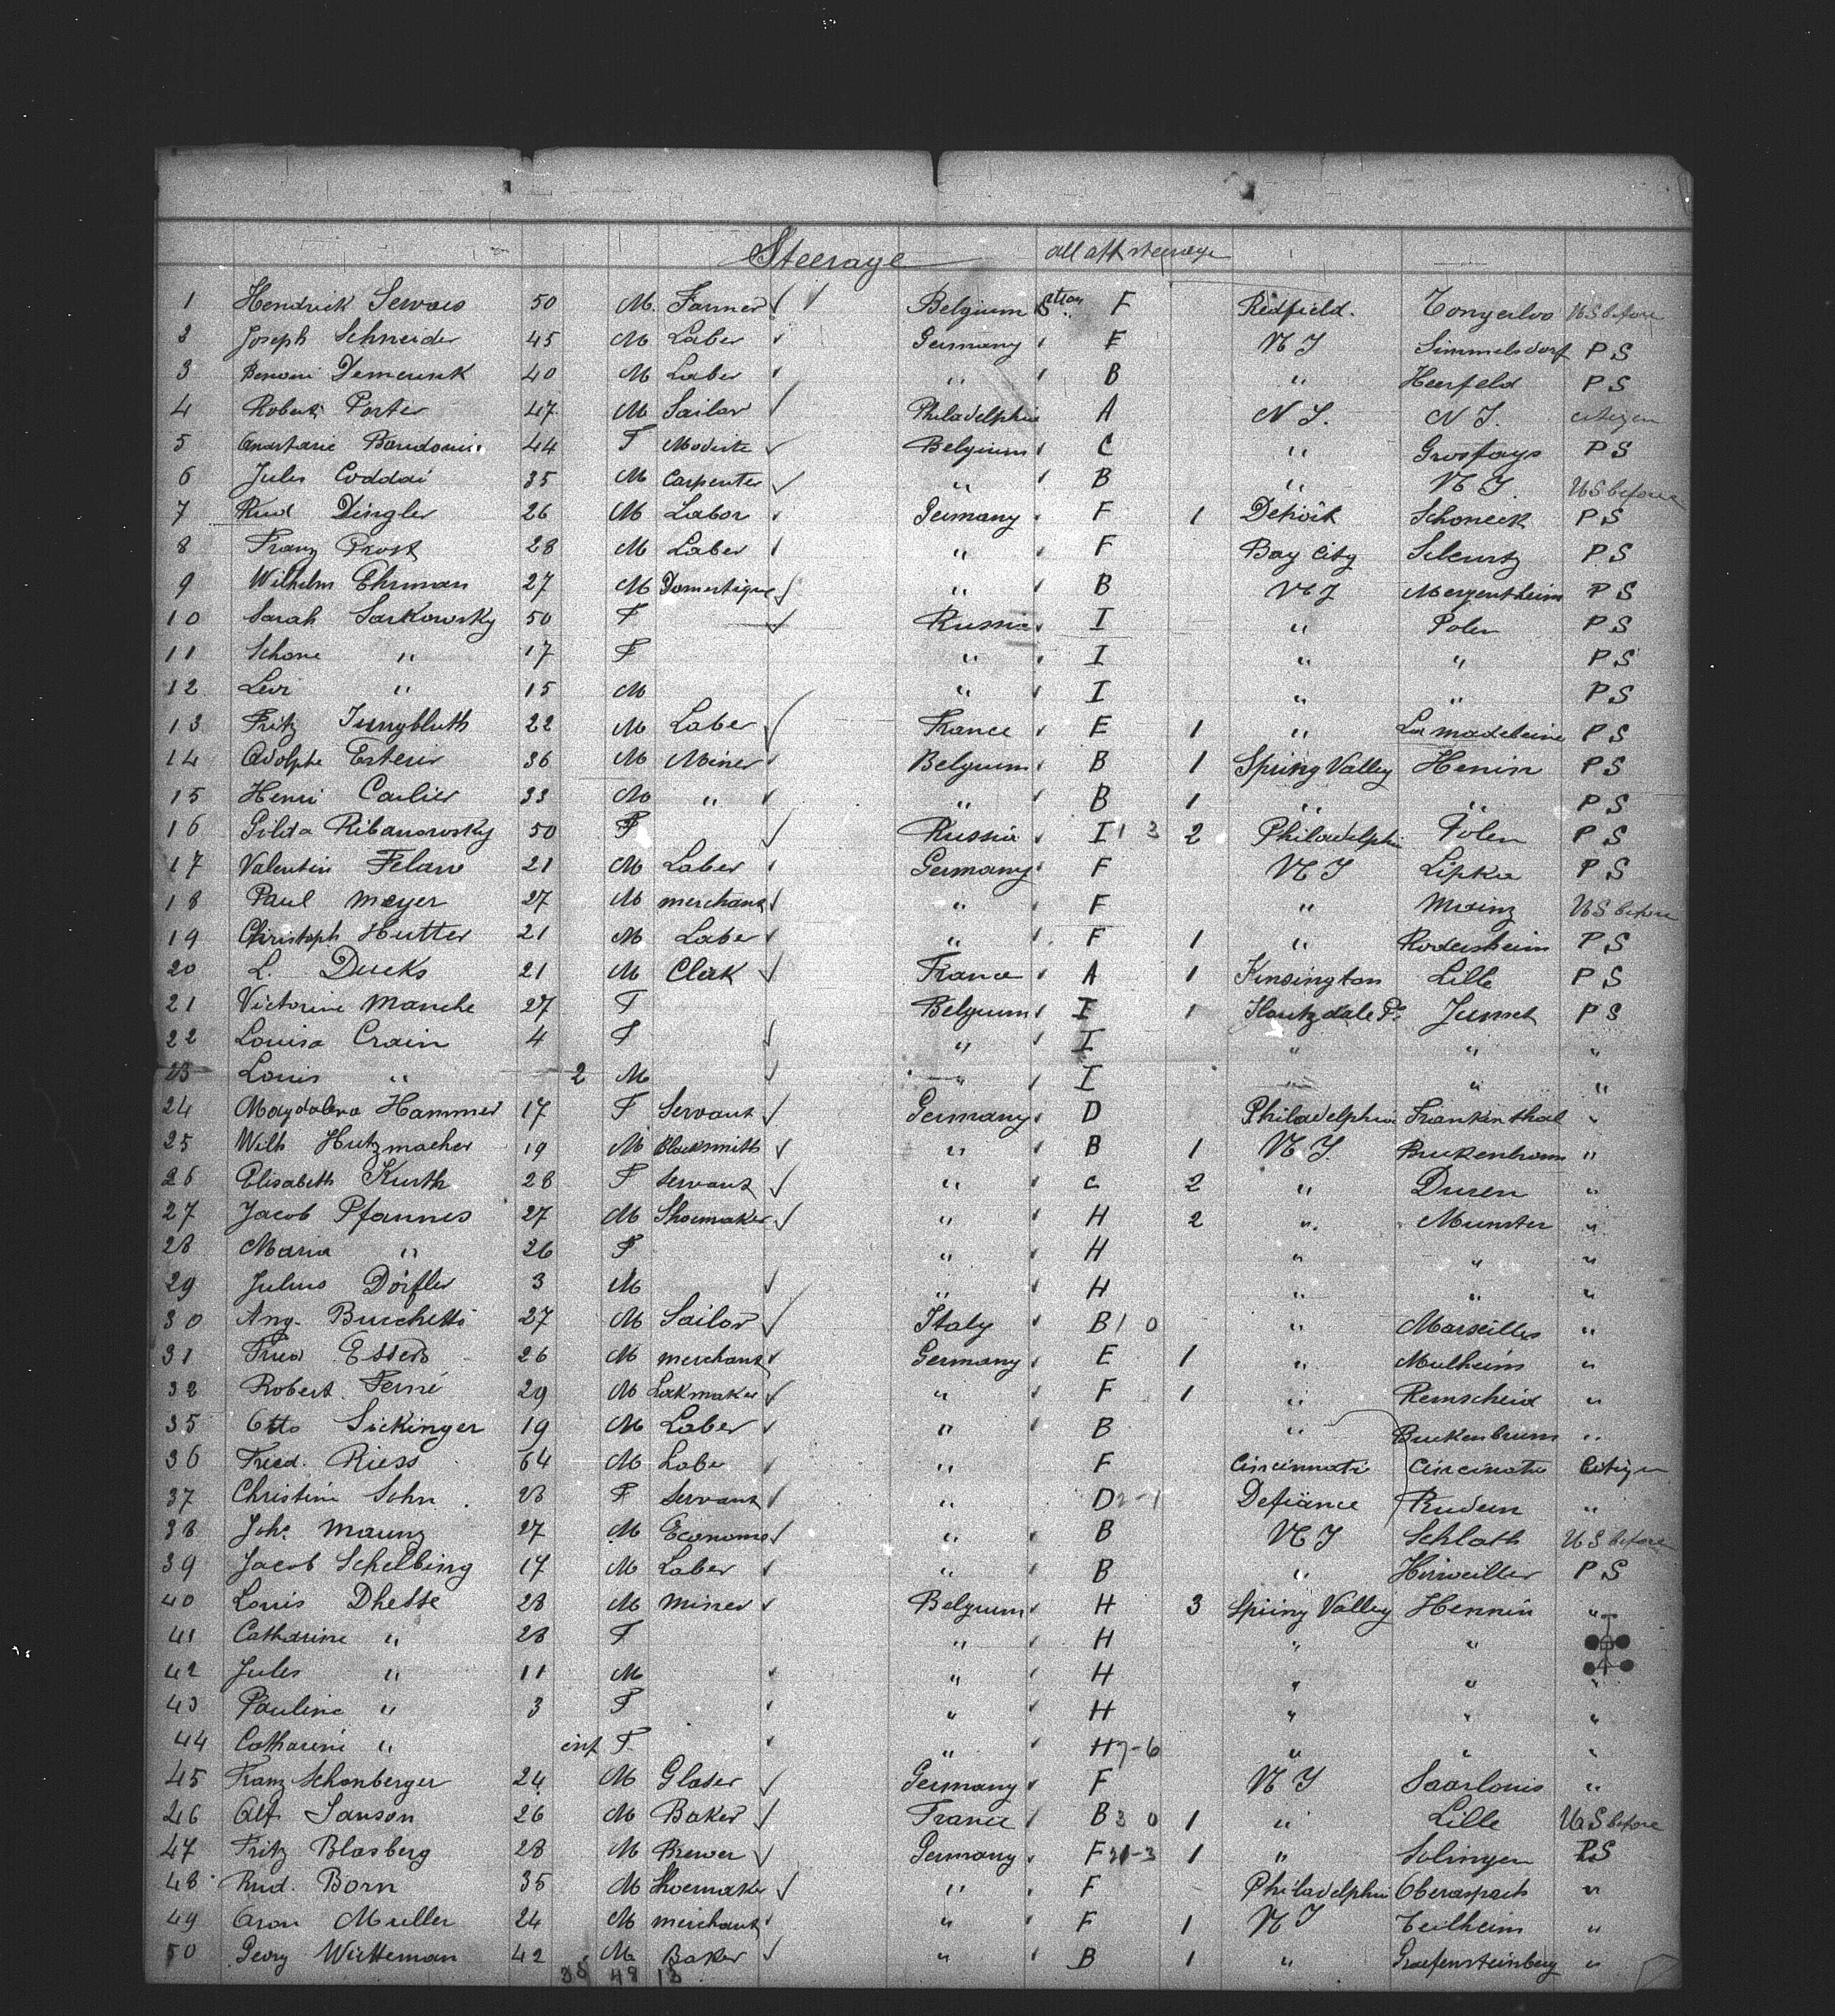 Steerage all aft steerage
1 Hendrick Servais 50 M. Farmer Belgium F Redfield. Tongerloo US before
2 Joseph Schneider 45 M Laber Germany E N Y Simmelsdorf P S
3 Demerink 40 M Laber " B " Heerfeld P S
4 Robert Porter 47 M Sailor Philadelphia A N Y. N Y. citizen
5 Anastasie Baudouin 44 F Modiste Belgium C " Grosfays P S
6 Jules Coddai 35 M Carpenter " B " N Y. US before
7 Rud Dingler 26 M Labor Germany F 1 Detroit Schoneck P S
8 Franz Prost 28 M Laber " F Bay City P S
9 Wilhelm Ehrman 27 M Domestique " B N Y Mergentheim P S
10 Sarah Sarkowsky 50 F Russia I " Polen P S
11 Schone " 17 F " I " " P S
12 Levi " 15 M " I " " P S
13 Fritz Jungbluth 22 M Laber France E 1 " La madeleine P S
14 Adolphe Esterir 36 M Miner Belgium B 1 Spring Valley Henin P S
15 Henri Carlier 33 M " " B 1 " " P S
16 Gilda Ribanowsky 50 F Russia I 1 3 2 Philadelphi Polen P S
17 Valentin Felan 21 M Laber Germany F N Y Lipka P S
18 Paul Meyer 27 M merchant " F " Mainz US before
19 Christoph Hutter 21 M Laber " F 1 " Rodersheim P S
20 L. Ducks 21 M Clerk France A 1 Kinsington Lille P S
21 Victorine Manche 27 F Belgium I 1 Houtzdale Pa Jumet P S
22 Louisa Crain 4 F " I " " "
23 Louis " 2 M " I " " "
24 Magdalena Hammer 17 F Servant Germany D Philadelphia Frankenthal "
25 Wilh Hutzmacher 19 M Blacksmith " B 1 N Y. "
26 Elisabeth Kurth 28 F Servant " C 2 " Duren "
27 Jacob Pfannes 27 M Shoemaker " H 2 " Munster "
28 Maria " 26 F " H " " "
29 Julius Dörfler 3 M " H " " "
30 Ang. Burchetti 27 M Sailor Italy B 1 0 " Marseilles "
31 Fried Essers 26 M merchant Germany E 1 " Mulheim "
32 Robert. Ferné 29 M Lokmaker " F 1 " Remscheid "
35 Otto Sickinger 19 M Laber " B " "
36 Fried. Riess 64 M Labe " F Cincinnati Cincinati Citizen
37 Christine Sohn 28 F Servant " D 2-1 Defiance "
38 Joh. Maunz 27 M Econome " B N Y Schlath US before
39 Jacob Schelbing 17 M Laber " B " Hirweiller P S
40 Louis Dhesse 28 M Miner Belgium H 3 Spring Valley Hennin "
41 Catharine " 28 F " H " "
42 Jules " 11 M " H " " "
43 Pauline " 3 F " H " " "
44 Catharine " inf F " H 7-6 " " "
45 Franz Schonberger 24 M Glaser Germany F N Y Saarlouis "
46 Alf Sanson 26 M Baker France B 3 0 1 " Lille US before
47 Fritz Blasberg 28 M Brewer Germany F 21-3 1 " Solingen P.S
48 Rud. Born 35 M Shoemaker " F Philadelphi "
49 Aron Muller 24 M merchant " F 1 N Y Teilheim "
50 Georg Witteman 42 M Baker " B 1 " Graefensteinberg "
35 48 13